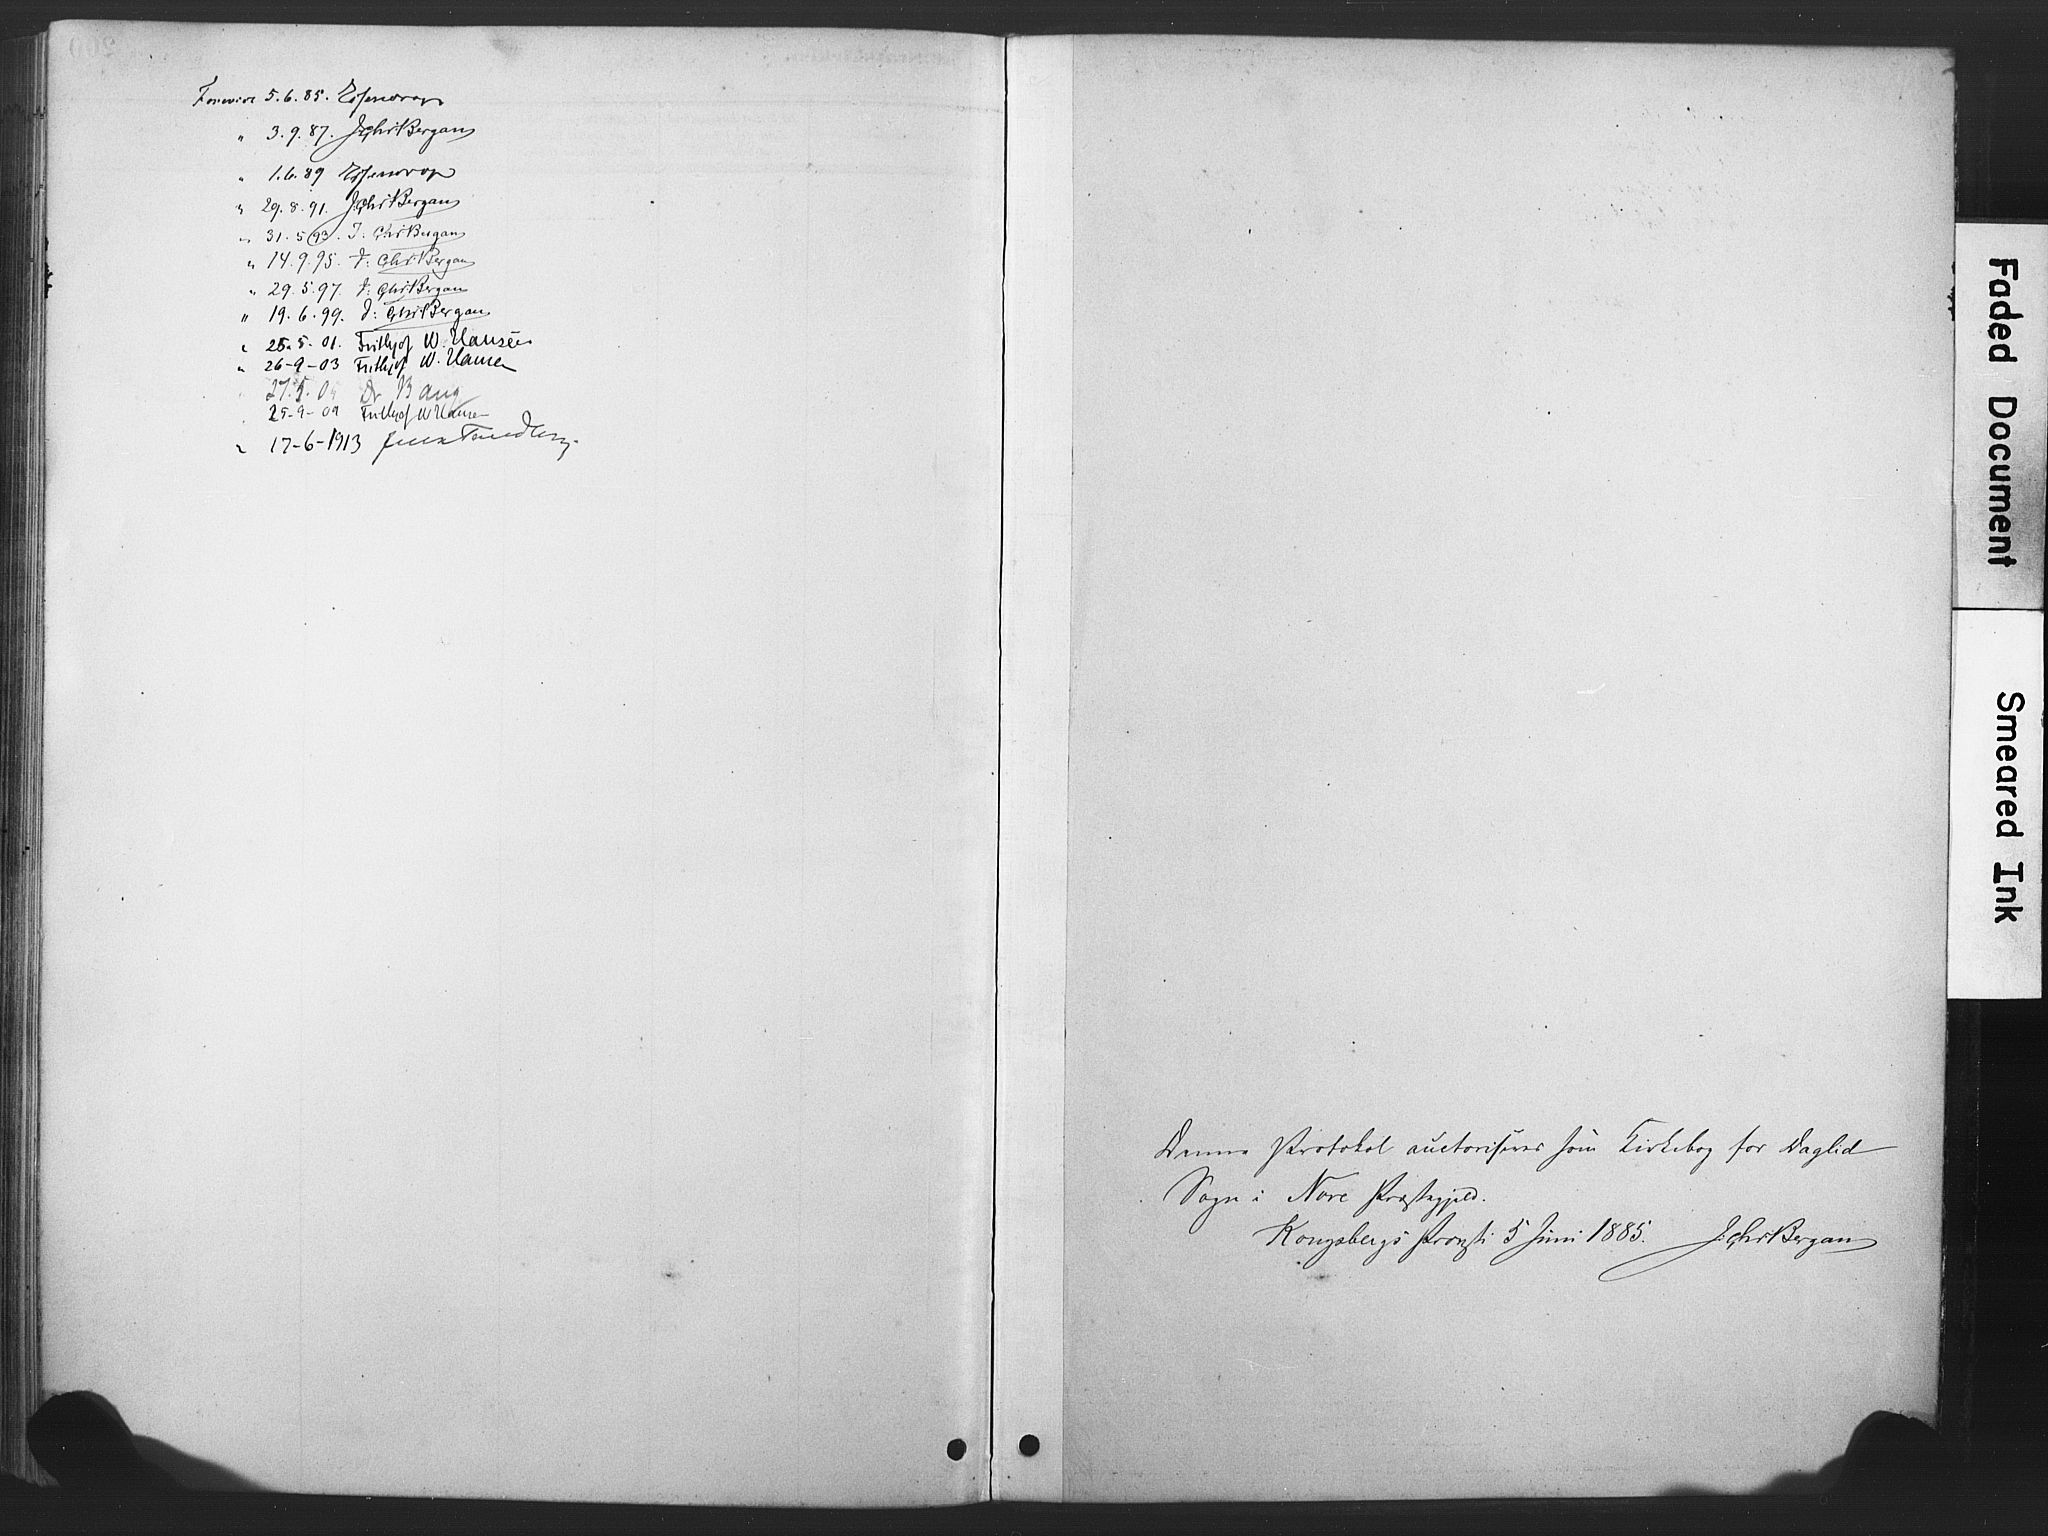 Forevist 5.6.85. Essendrop
" 3.9.87. J: Chr Bergan
" 1.6.89 Essendrop
" 29.8.91. J: Chr Bergan
" 31.5.93. J: Chr Bergan
" 14.9.95. J: Chr Bergan
" 29.5.97. J: Chr Bergan
" 19.6.99. J: Chr Bergan
" 25.5.01. Frithjof W. Hansen
" 26-9-03 Frithjof W. Hansen
27.5.0 Bang
25-9-09 Frithjof W Hansen
" 17-6-1913 Jens Tandberg.
Denne Protokol auctoriseres som Kirkebog for Daglid
Sogn i Nore Præstegjeld.
Kongsbergs Provsti 5 Juni 1885. J: Chr Bergan
Faded Document
Smeared Ink